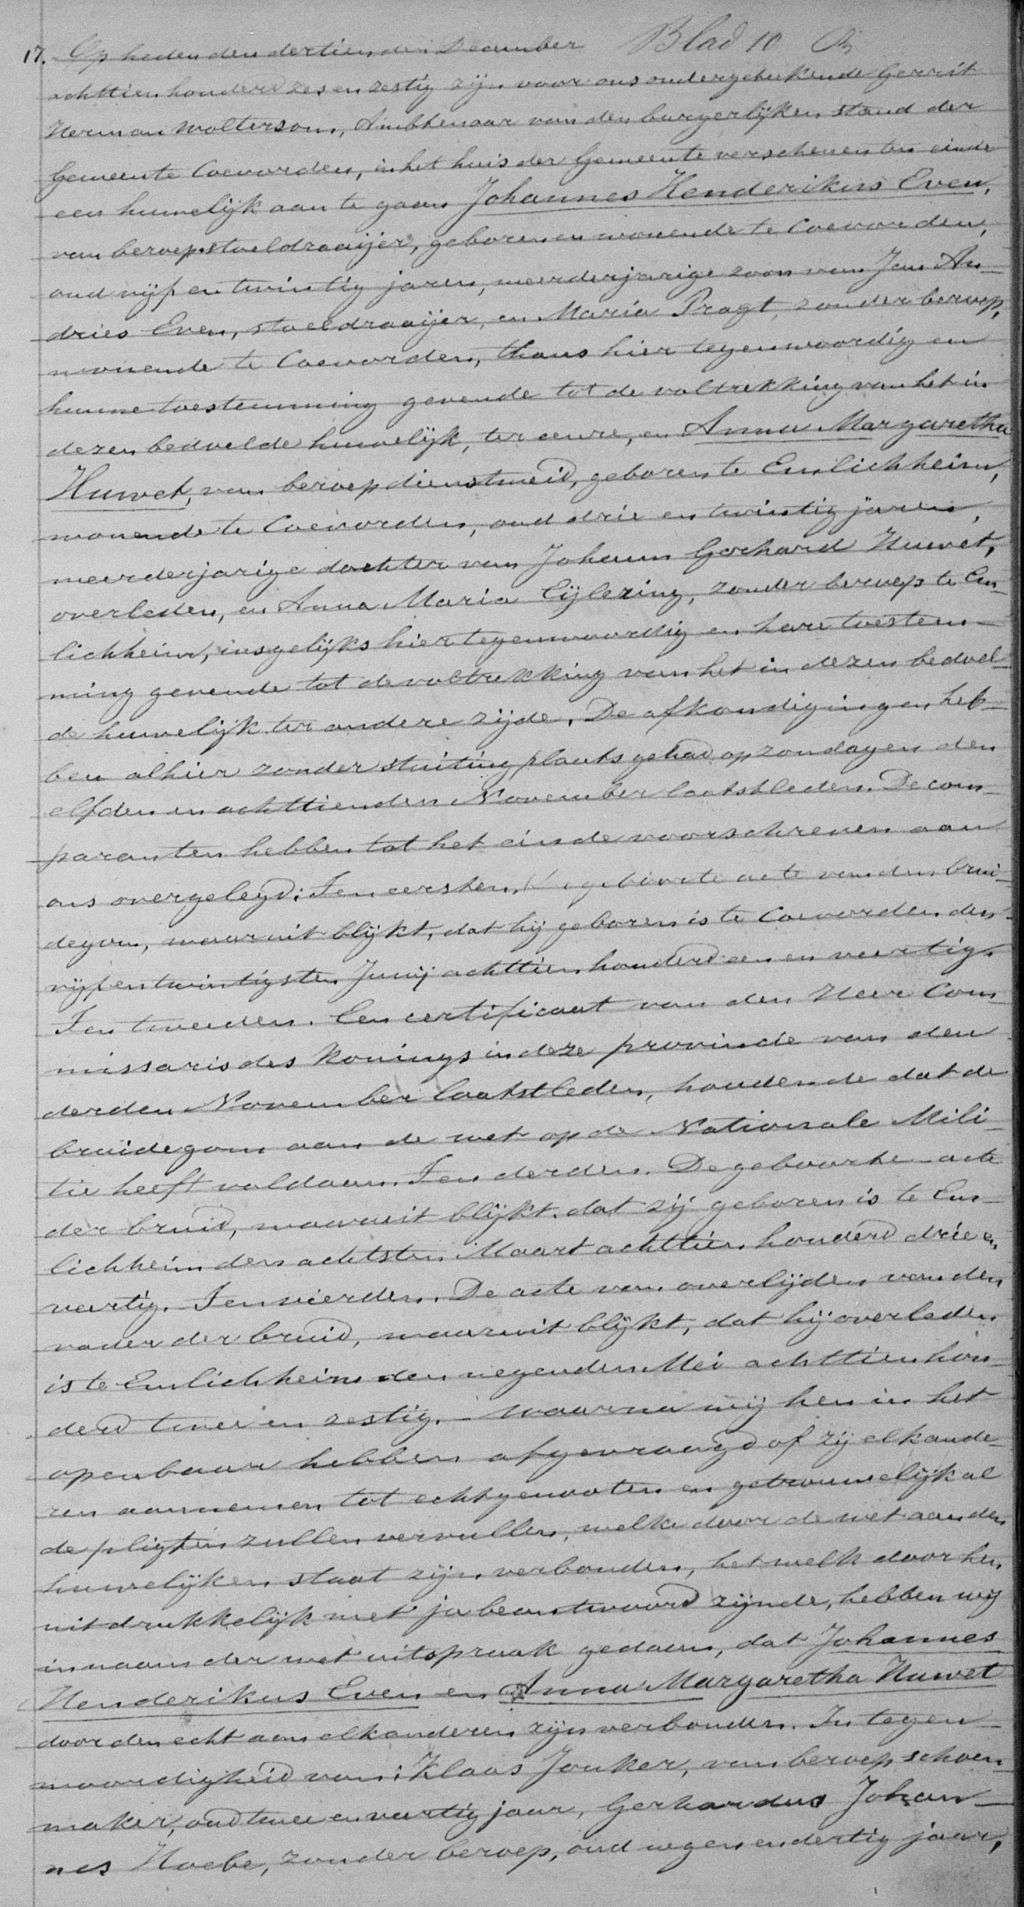 17. Op heden den dertienden December Blad 10
achttien honderd zes en zestig zijn voor ons ondergeteekende Gerrit
Herman Woltersom, Ambtenaar van den burgerlijken stand der
Gemeente Coevorden, in het huis der Gemeente verschenen ten einde
een huwelijk aan te gaan Johannes Henderikus Even,
van beroep stoeldraaijer, geboren en wonende te Coevorden,
oud vijf en twintig jaren, meerderjarige zoon van Jan An-
dries Even, stoeldraaijer, en Maria Pragt, zonder beroep,
wonende te Coevorden, thans hier tegenwoordig en
hunne toestemming gevende tot de voltrekking van het in
dezen bedoelde huwelijk, ter eenre, en Anna Margaretha
Huwet, van beroep dienstmeid, geboren te Emlichheim,
wonende te Coevorden, oud drie en twintig jaren,
meerderjarige dochter van Johann Gerhard Huwet,
overleden, en Anna Maria Eijlering, zonder beroep te Em-
lichheim, insgelijks hier tegenwoordig en hare toestem-
ming gevende tot de voltrekking van het in dezen bedoel-
de huwelijk ter andere zijde. De afkondigingen heb-
ben alhier zonder stuiting plaats gehad op zondagen den
elfden en achttienden November laatstleden. De com-
paranten hebben tot het einde voorschreven aan
ons overgelegd: Ten eersten, De geboorte acte van den brui-
degom, waaruit blijkt, dat hij geboren is te Coevorden den
vijf en twintigsten Junij achttien honderd een en veertig.
Ten tweeden. Een certificaat van den Heer Com-
missaris des Konings in deze provincie van den
derden November laatstleden, houdende dat de
bruidegom aan de wet op de Nationale Mili-
tie heeft voldaan. Ten derden. De geboorte acte
der bruid, waaruit blijkt, dat zij geboren is te Em-
lichheim den achtsten Maart achttien honderd drie en
veertig. Ten vierden. De acte van overlijden van den
vader der bruid, waaruit blijkt, dat hij overleden
is te Emlichheim den negenden Mei achttien hon-
derd twee en zestig. Waarna wij hen in het
openbaar hebben afgevraagd of zij elkande-
ren aannemen tot echtgenooten en getrouwelijk al
de pligten zullen vervullen, welke door de wet aan den
huwelijken staat zijn verbonden, het welk door hen
uitdrukkelijk met ja beantwoord zijnde, hebben wij
in naam der wet uitspraak gedaan, dat Johannes
Henderikus Even en Anna Margaretha Huwet
door den echt aan elkanderen zijn verbonden. In tegen-
woordigheid van: Klaas Jonker, van beroep schoen-
maker, oud twee en veertig jaar, Gerhardus Johan-
nes Hoebe, zonder beroep, oud negen en dertig jaar,